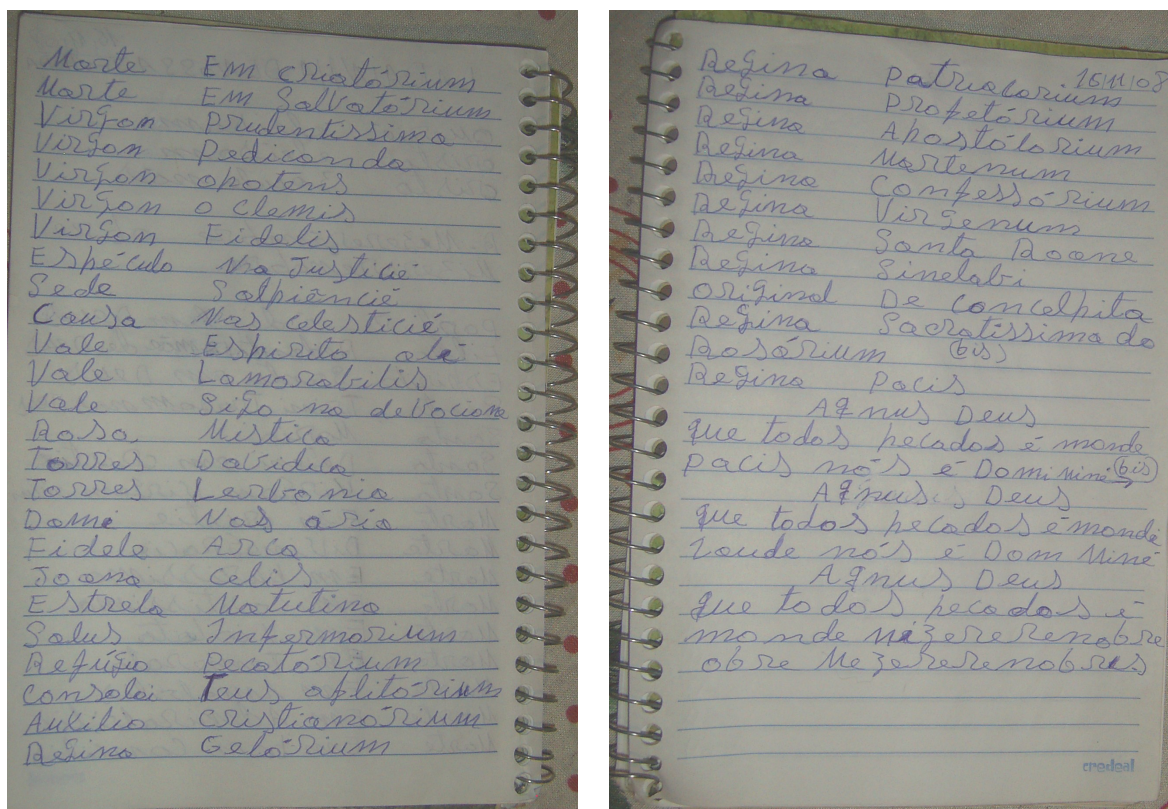 Marte Em criatórium
Marte Em Salvatórium
Virgon Prudentíssima
Virgon Pedicanda
Virgon opotens
Virgon o Clemis
Virgon Fidelis
Espéculo Na Justicié
Sede Salpiêncié
Causa Nas celesticié
Vale Espirito alé
Vale Lamorabilis
Vale Sigo na devociona
Rosa Mistica
Torres Davidica
Torres Lerbonia
Domi Nas ório
Fidele Arca
Joana Celis
Estrela Matutina
Salus Infermorium
Refúgio Pecatórium
Consolai Teus aflitórium
Auxilio Cristianórium
Regina Gelórium
16/11/08
Regina Patrialorium
Regina Profetórium
Regina Apostólorium
Regina Martenum
Regina Confessórium
Regina Virgenum
Regina Santa Roane
Regina Sinelabi
Original De concelpita
Regina Sacratíssima do
Rosárium (bis)
Regina Pacis
Agnus Deus
que todos pecados é monde
Pacis nós é Dominimé (bis)
Agnus Deus
que todos pecados é monde
Zaude nós é Dom Miné
Agnus Deus
que todos pecados é
monde mizererenobre
obre Mezererenobris
credeal